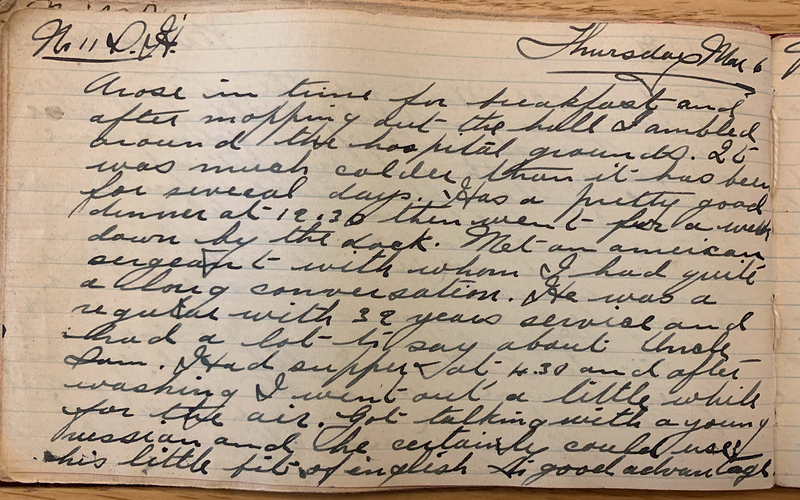 No 11 D.H. Thursday Mar 6
Arose in time for breakfast and
after mopping out the hall I ambled
around the hospital grounds. It
was much colder than it has been
for several days. Has a pretty good
dinner at 12.30 then went for a walk
down by the dock. Met an american
sergeant with whom I had quite
a long conversation. He was a
regular with 32 years service and
had a lot to say about Uncle
Sam. Had supper at 4.30 and after
washing I went out a little while
for the air. Got talking with a young
russian and he certainly could use
his little bit of english to good advantage.